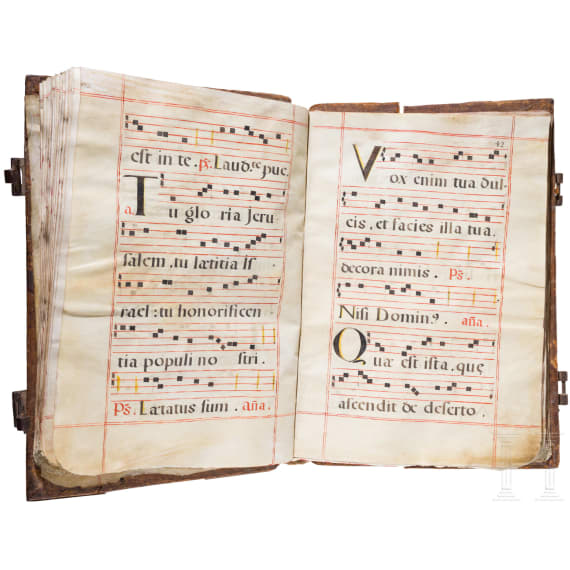 est in te. ps. Laud.te pue.
a. Tu glo ria Jeru
salem, tu lætitia Is
rael: tu honorificen
tia populi no stri.
Ps. Lætatus sum. aña.
42
Vox enim tua dul
cis, et facies illa tua
decora nimis. Ps.
Nisi Domin9. aña.
Quæ est ista, quę
ascendit de deserto.